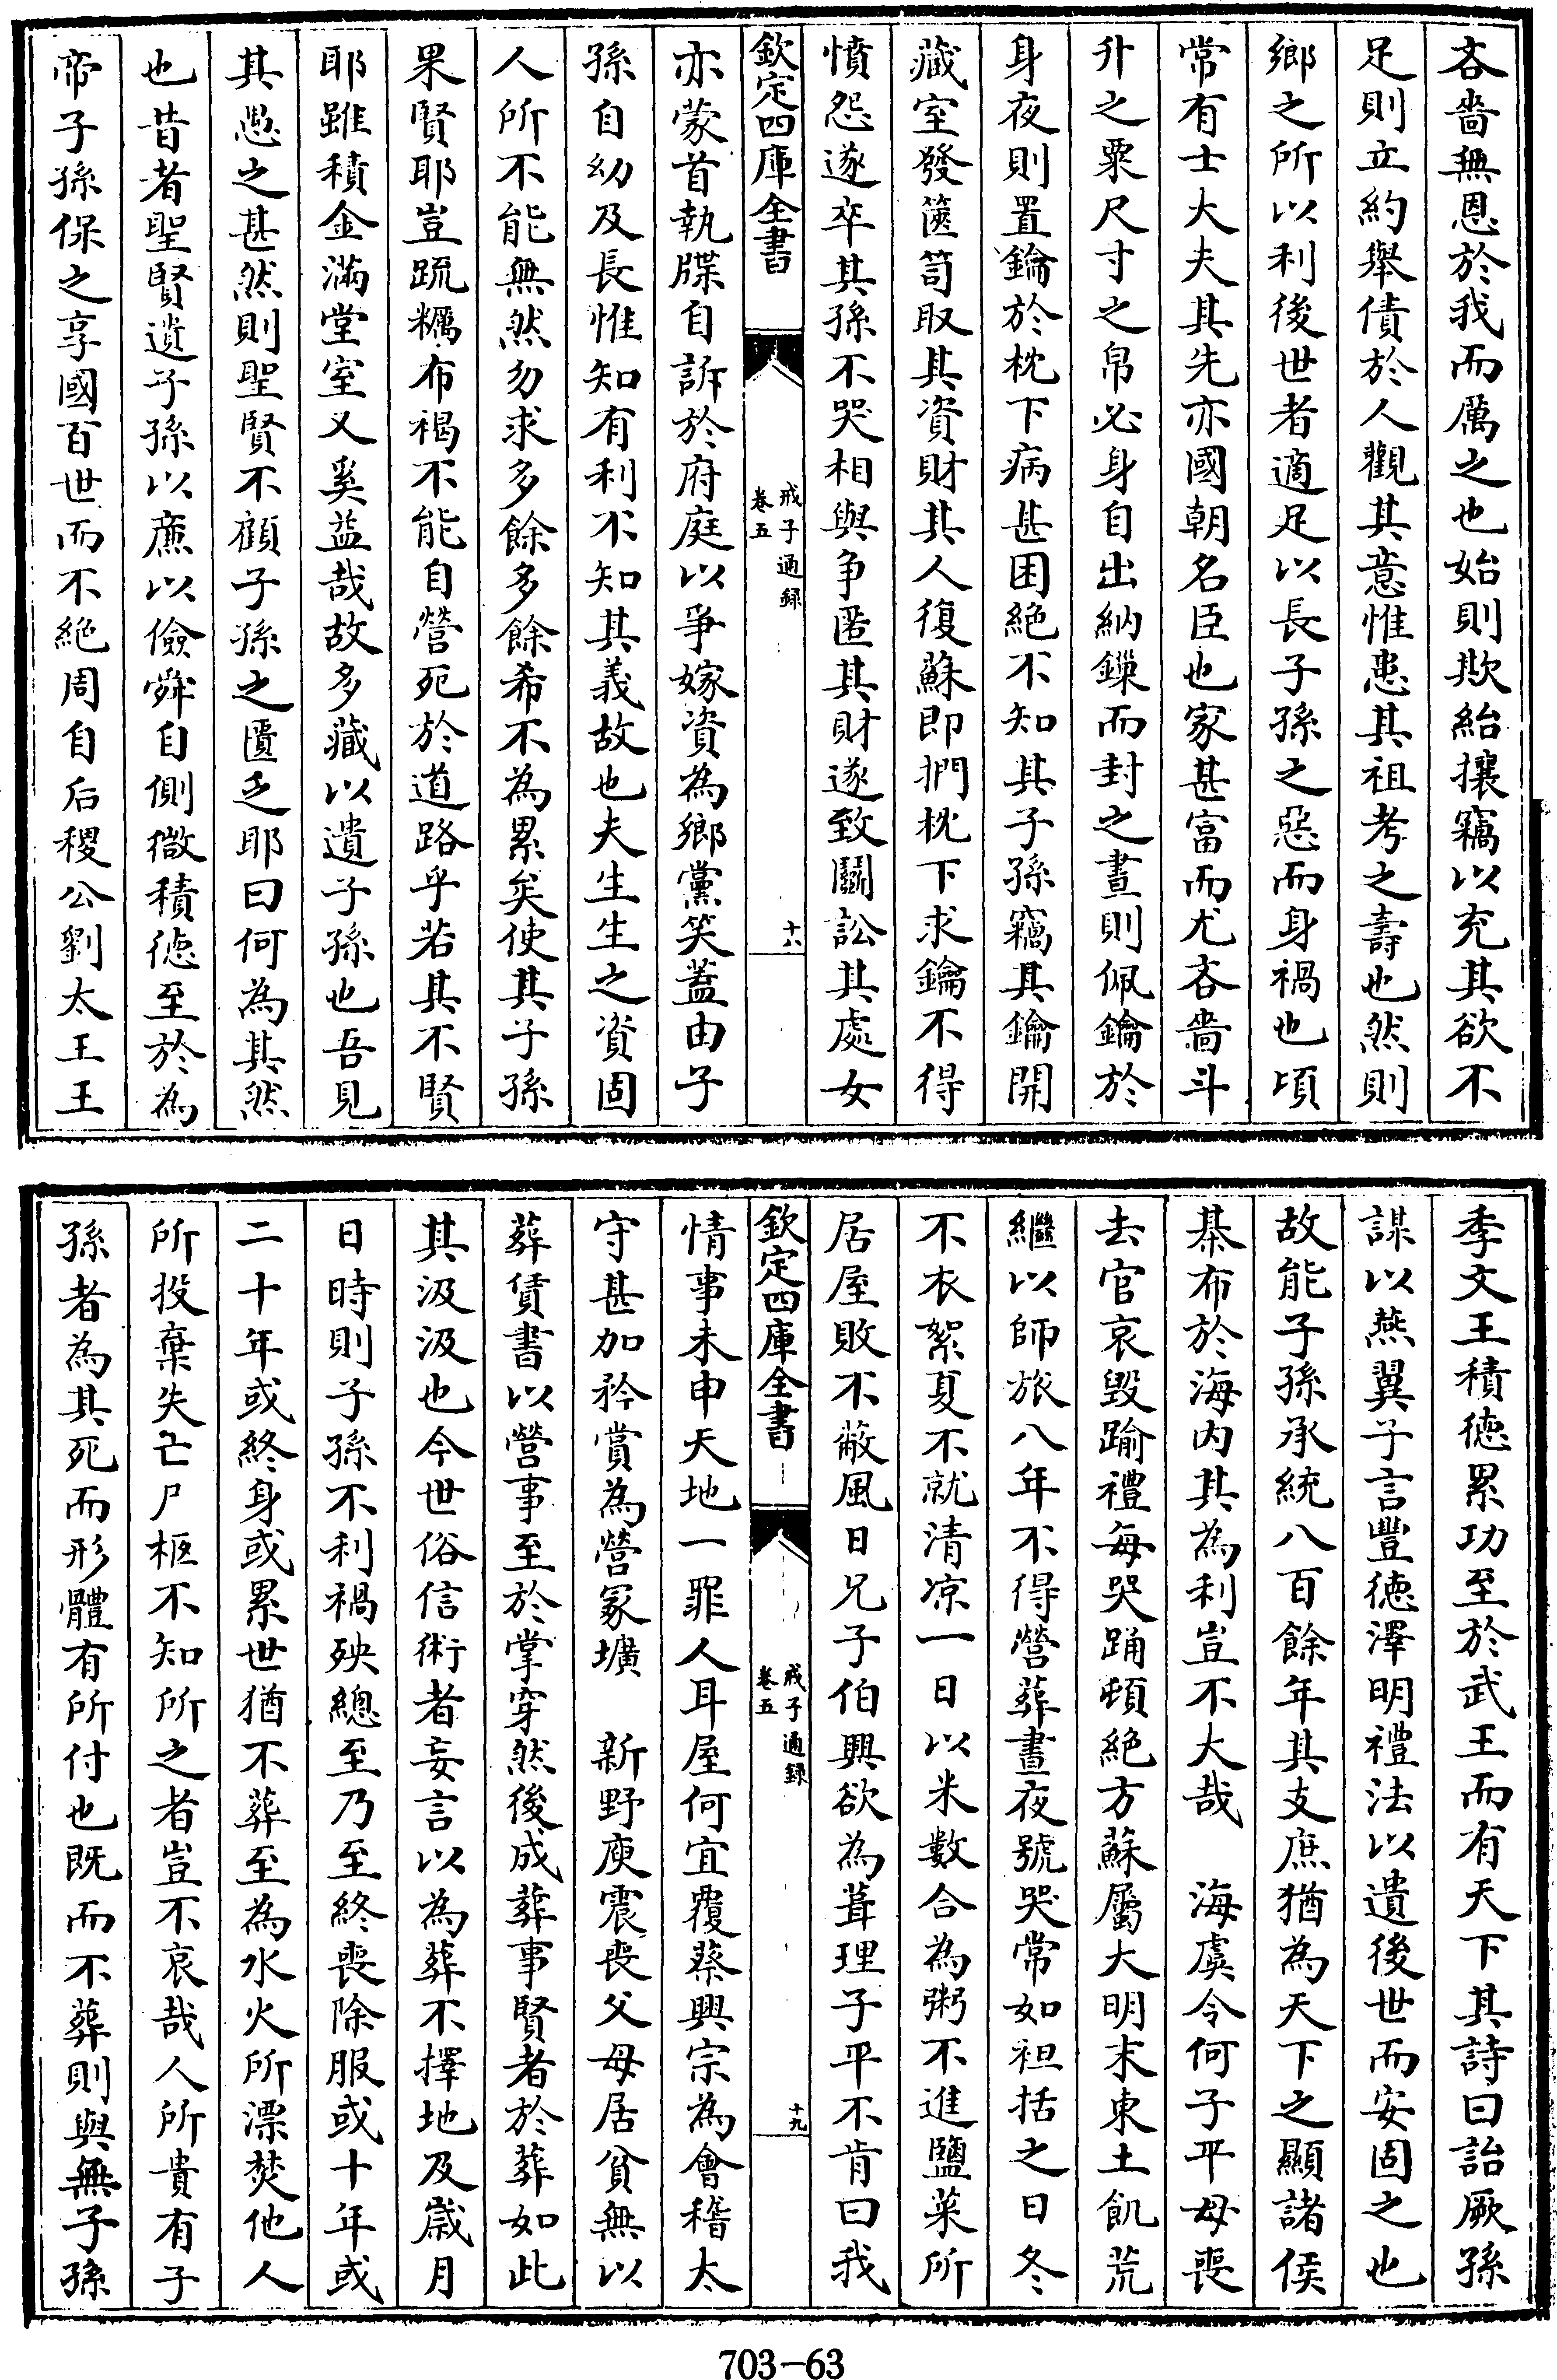 吝嗇無恩於我而厲之也始則欺紿攘竊以充其欲不
足則立約舉債於人觀其意惟患其祖考之壽也然則
鄉之所以利後世者適足以長子孫之惡而身禍也頃
常有士大夫其先亦國朝名臣也家甚富而尤吝嗇斗
升之粟尺寸之帛必身自出納鏁而封之晝則佩鑰於
身夜則置鑰於枕下病甚困絕不知其子孫竊其鑰開
藏室發篋笥取其資財其人復蘇即捫枕下求鑰不得
憤怨遂卒其孫不哭相與争匿其財遂致鬬訟其處女
欽定四庫全書
戒子通録
卷五
十八
亦蒙首執牒自訴於府庭以爭嫁資為鄉黨笑蓋由子
孫自幼及長惟知有利不知其義故也夫生生之資固
人所不能無然勿求多餘多餘希不為累矣使其子孫
果賢耶豈疏糲布褐不能自營死於道路乎若其不賢
耶雖積金滿堂室又奚益哉故多藏以遺子孫也吾見
其愚之甚然則聖賢不顧子孫之匱乏耶曰何為其然
也昔者聖賢遺子孫以廉以儉舜自側微積德至於為
帝子孫保之享國百世而不絕周自后稷公劉太王王
季文王積德累功至於武王而有天下其詩曰詒厥孫
謀以燕翼子言豐德澤明禮法以遺後世而安固之也
故能子孫承統八百餘年其支庶猶為天下之顯諸侯
棊布於海内其為利豈不大哉　海虞令何子平母喪
去官哀毁踰禮每哭踊頓絕方蘇屬大明末東土飢荒
繼以師旅八年不得營葬晝夜號哭常如袒括之日冬
不衣絮夏不就清凉一日以米數合為粥不進鹽菜所
居屋敗不蔽風日兄子伯興欲為葺理子平不肯曰我
欽定四庫全書
戒子通録
卷五
十九
情事未申天地一罪人耳屋何宜覆蔡興宗為會稽太
守甚加矜賞為營冢壙　新野庾震喪父母居貧無以
葬賃書以營事至於掌穿然後成葬事賢者於葬如此
其汲汲也今世俗信術者妄言以為葬不擇地及歲月
日時則子孫不利禍殃總至乃至終喪除服或十年或
二十年或終身或累世猶不葬至為水火所漂焚他人
所投棄失亡尸柩不知所之者豈不哀哉人所貴有子
孫者為其死而形體有所付也既而不葬則與無子孫
703-63